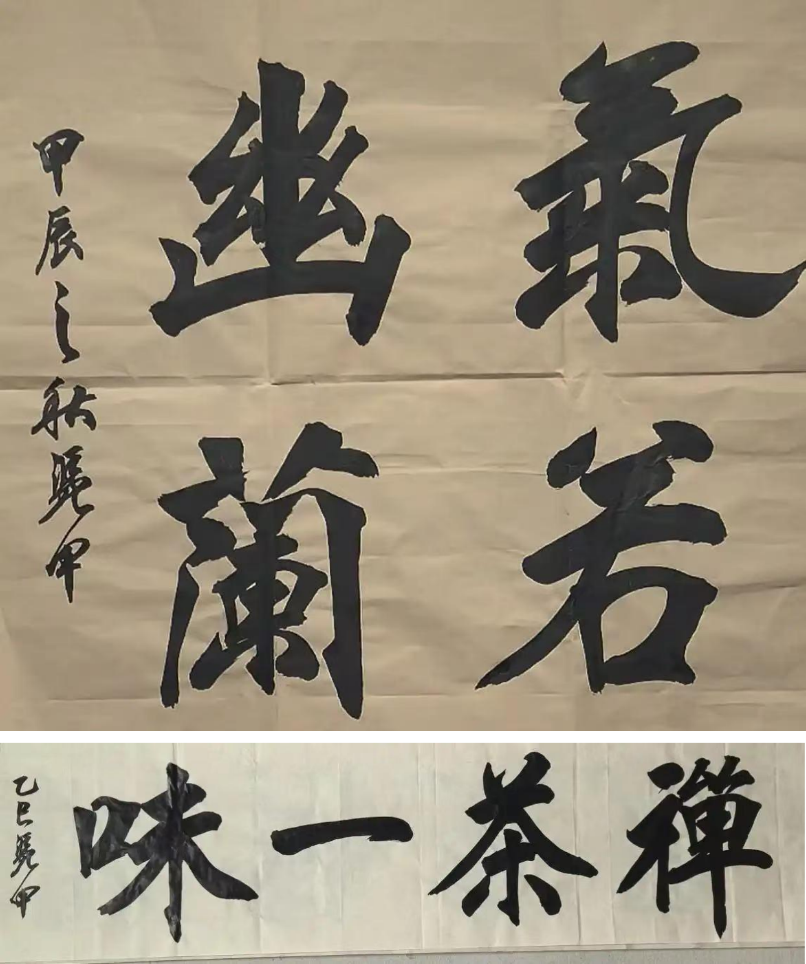 氣若
幽蘭
甲辰之秋甲
禪茶一味
乙巳甲